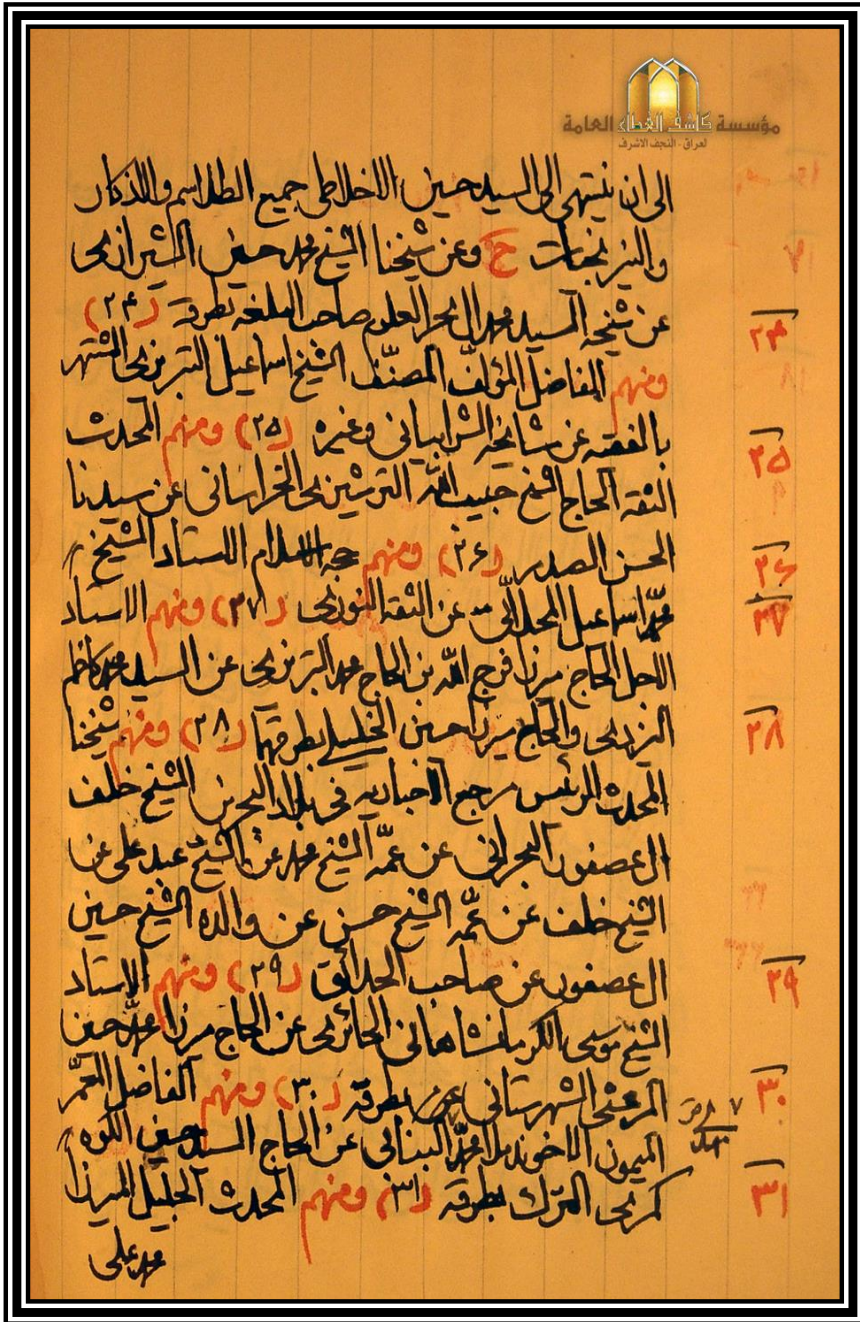 مؤسسة كاشف الغطاء العامة
العراق - النجف الاشرف
الى ان ينتهى الى السيد حسين الاخلاطى جميع الطلاسم والاذكار
والنيرنجيات ح وعن شيخنا الشيخ محمد حسين الشيرازى
عن شيخه السيد محمد ال بحر العلوم صاحب البلغه بطرقه (٢٤)
ومنهم الفاضل المؤلف المصنّف الشيخ اسماعيل التبريزى المشتهر
بالفقيه عن مشايخه الشرابيانى وغيره (٢٥) ومنهم المحدث
الثقة الحاج الشيخ حبيب الله الترشيزى الخراسانى عن سيدنا
الحسن الصدر (٢۶) ومنهم حجه الاسلام الاستاد الشيخ
محمد اسماعيل المحلاتى عن الثقة النورى (٢٧) ومنهم الاستاد
الاجل الحاج ميرزا فرج الله بن الحاج محمد التبريزى عن السيد محمد كاظم
اليزدى والحاج ميرزا حسين الخليلى بطرقهما (٢٨) ومنهم شيخنا
المحدث الرئيس مرجع الاخباريه فى بلاد البحرين الشيخ خلف
ال عصفور البحرانى عن عمّه الشيخ محمد عن الشيخ عبد على عن
الشيخ خلف عن عمّه الشيخ حسن عن والده الشيخ حسين
ال عصفور عن صاحب الحدائق (٢٩) ومنهم الاستاد
الشيخ موسى الكرمانشاهانى الحائرى عن الحاج مرزا محمد حسين
المرعشى الشهرستانى بطرقه (٣٠) ومنهم الفاضل المعمّر
الميمون الاخوند ملا محمد البنابى عن الحاج السيد حسين الكوه
كمرى الترك بطرقه (٣١) ومنهم المحدث الجليل الميرزا
محمد على
٢٤
٢٥
٢۶
٢٧
٢٨
٢٩
٣٠
٣١